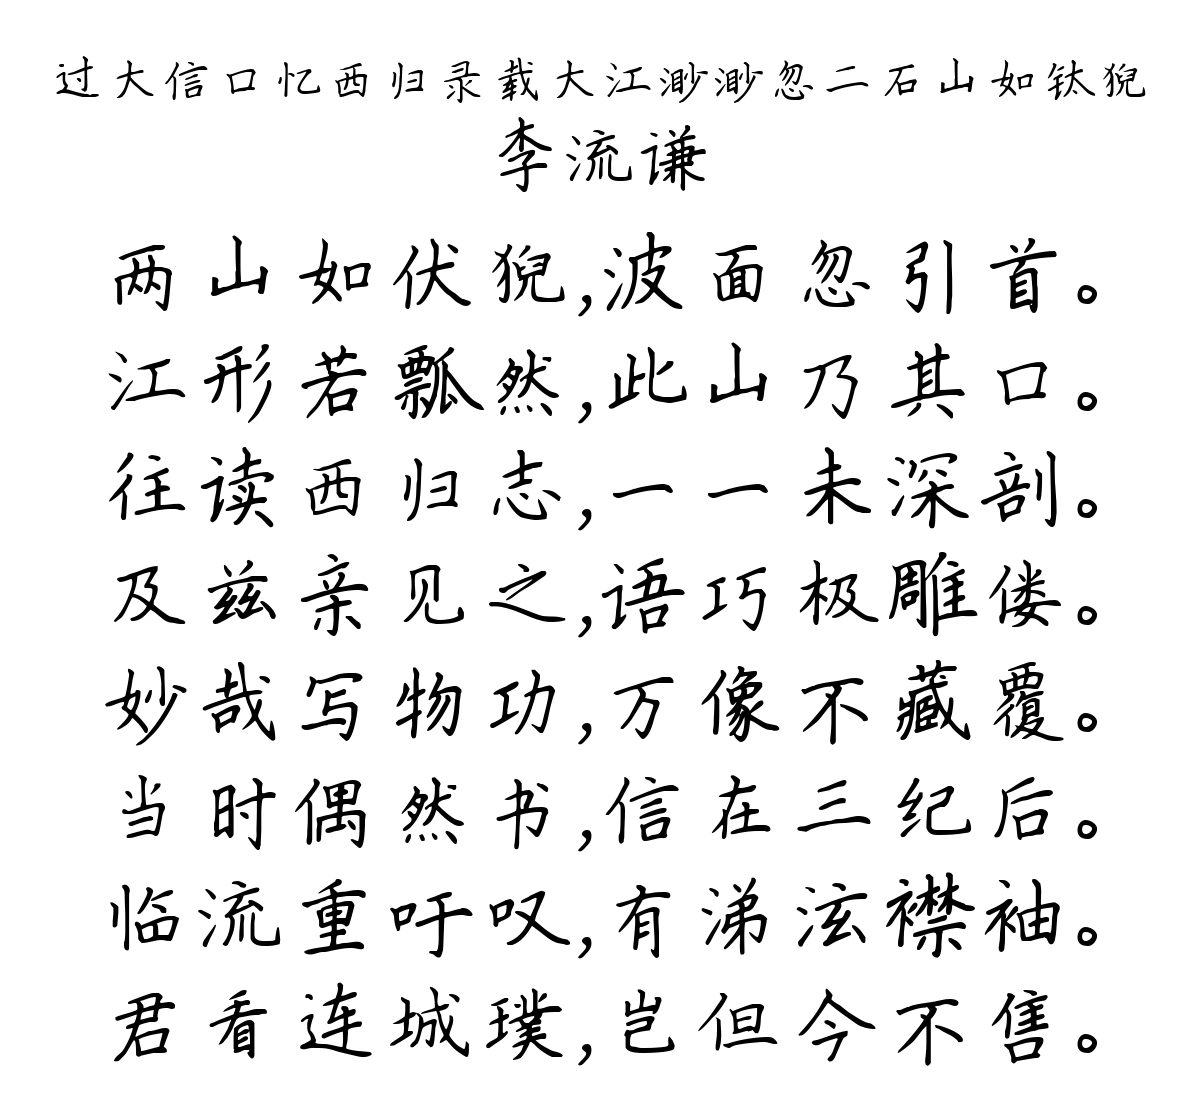 过大信口忆西归录载大江渺渺忽二石山如钛猊
李流谦
两山如伏猊,波面忽引首。
江形若瓢然,此山乃其口。
往读西归志,一一未深剖。
及兹亲见之,语巧极雕偻。
妙哉写物功,万像不藏覆。
当时偶然书,信在三纪后。
临流重吁叹,有涕泫襟袖。
君看连城璞,岂但今不售。